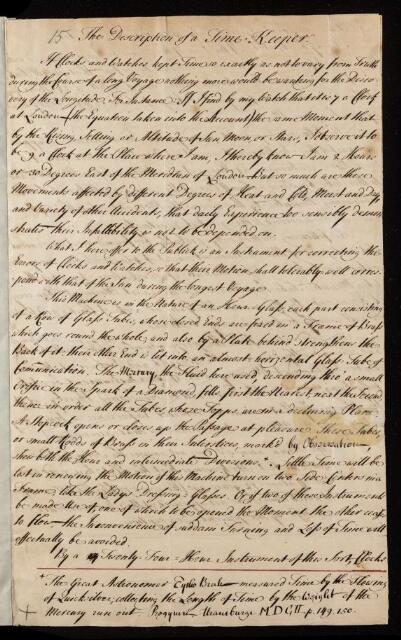 15 The Description of a Time-Keeper
If Clocks and Watches kept Time so exactly as not to vary from Truth
during the Course of a long Voyage nothing more would be wanting for the Disco-
very of the Longitude. For Instance: If I find by my Watch that it is 7 a Clock
at London (the Equation taken into the Account) the same Moment that
by the Rising, Setting or Altitude of Sun Moon, or Stars, I observe it to
be 9 a Clock at the Place where I am, I thereby know I am 2 Hours
or 30 Degrees East of the Meridian of London. But so much are those
Movements affected by different Degrees of Heat and Cold, Moist and Dry
and Variety of other Accidents, that daily Experience too sensibly demon-
strates their Infallibility is not to be depended on.
What I here offer to the Publick is an Instrument for correcting the
Errors of Clocks and Watches, so that their Motion shall tolerably well corres-
pond with that of the Sun during the longest Voyage
This Machine is in the Nature of an Hour-Glass, each part consisting
of a Row of Glass Tubes, whose closed Ends are fixed in a Frame of Brass
which goes round the whole, and also by a Plate behind strengthens the
Back of it: their other End is let into an almost horizontal Glass Tube of
Comunication. The Mercury, the Fluid here used, descending thro' a small
Orifice in the Spark of a Diamond fills first the Nearest, next the Second,
thence in order all the Tubes, whose Topps are in a declining Plane.
A Stopcock opens or closes up the Passage at pleasure. These Tubes,
or small Rodds of Brass in their Interstices, mark'd by Observation,
shew both the Hour and intermediate Divisions*. Little Time will be
lost in renewing the Motion of this Machine turn'd on two Side Centers in a
Frame, like the Ladys Dressing Glasses. Or if two of those Instruments
be made Use of, one of which to be opened the Moment the other ceases
to flow, the Inconvenience of suddain Turning and Loss of Time will
effectually be avoided.
By a Twenty-Four-Hour Instrument of this Sort, Clocks
* The Great Astronomer Tycho Brahe measured Time by the Flowing
of Quicksilver, collecting the Length of Time by the Weight of the
Mercury run out. Progymn: Uraniburgi MDCII. p. 149. 150.
+